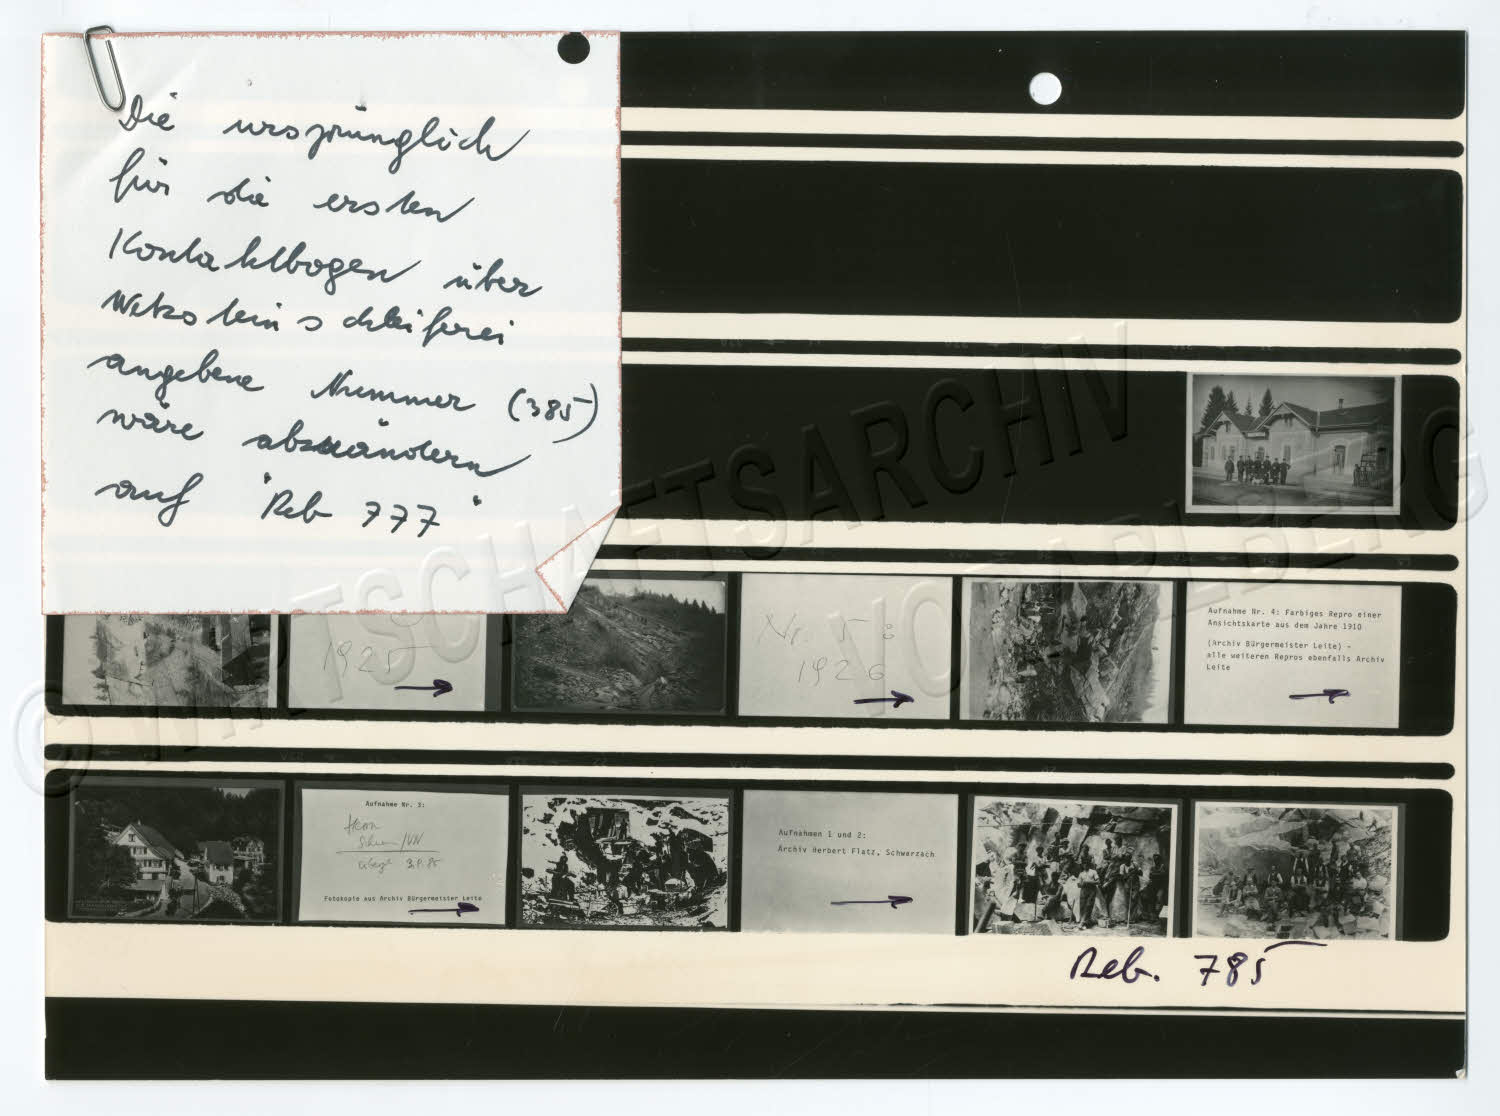 Die ursprünglich
für die ersten
Kontaktbogen über
Wetzsteinschleiferei
angebene Nummer (385)
wäre abzuändern
auf "Reb 777"
1925
Nr. 5:
1926
Aufnahme Nr. 4: Farbiges Repro einer
Ansichtskarte aus dem Jahre 1910
(Archiv Bürgermeister Leite) -
alle weiteren Repros ebenfalls Archiv
Leite
Aufnahme Nr. 3:
Herrn
/VN
3.9.85
Fotokopie aus Archiv Bürgermeister Leite
Aufnahmen 1 und 2:
Archiv Herbert Flatz, Schwarzach
Reb. 785
© WIRTSCHAFTSARCHIV
VORARLBERG